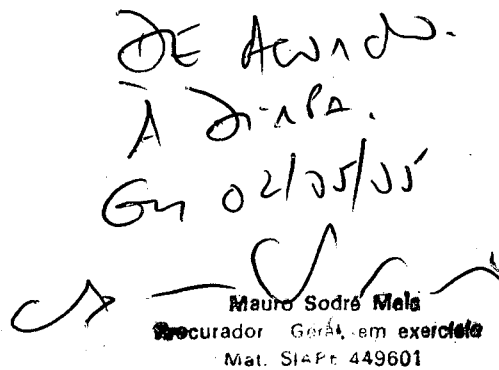 DE Acordo.
À DIRPA.
Em 02/05/05
Mauro Sodré Maia
Procurador Geral, em exercício
Mat. SIAPE 449601